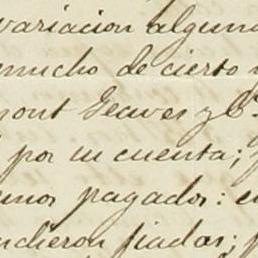 variacion alguna
mucho de cierto
mont Geaves y Cª
por su cuenta;
unos pagados: e
ndieron fiadas;